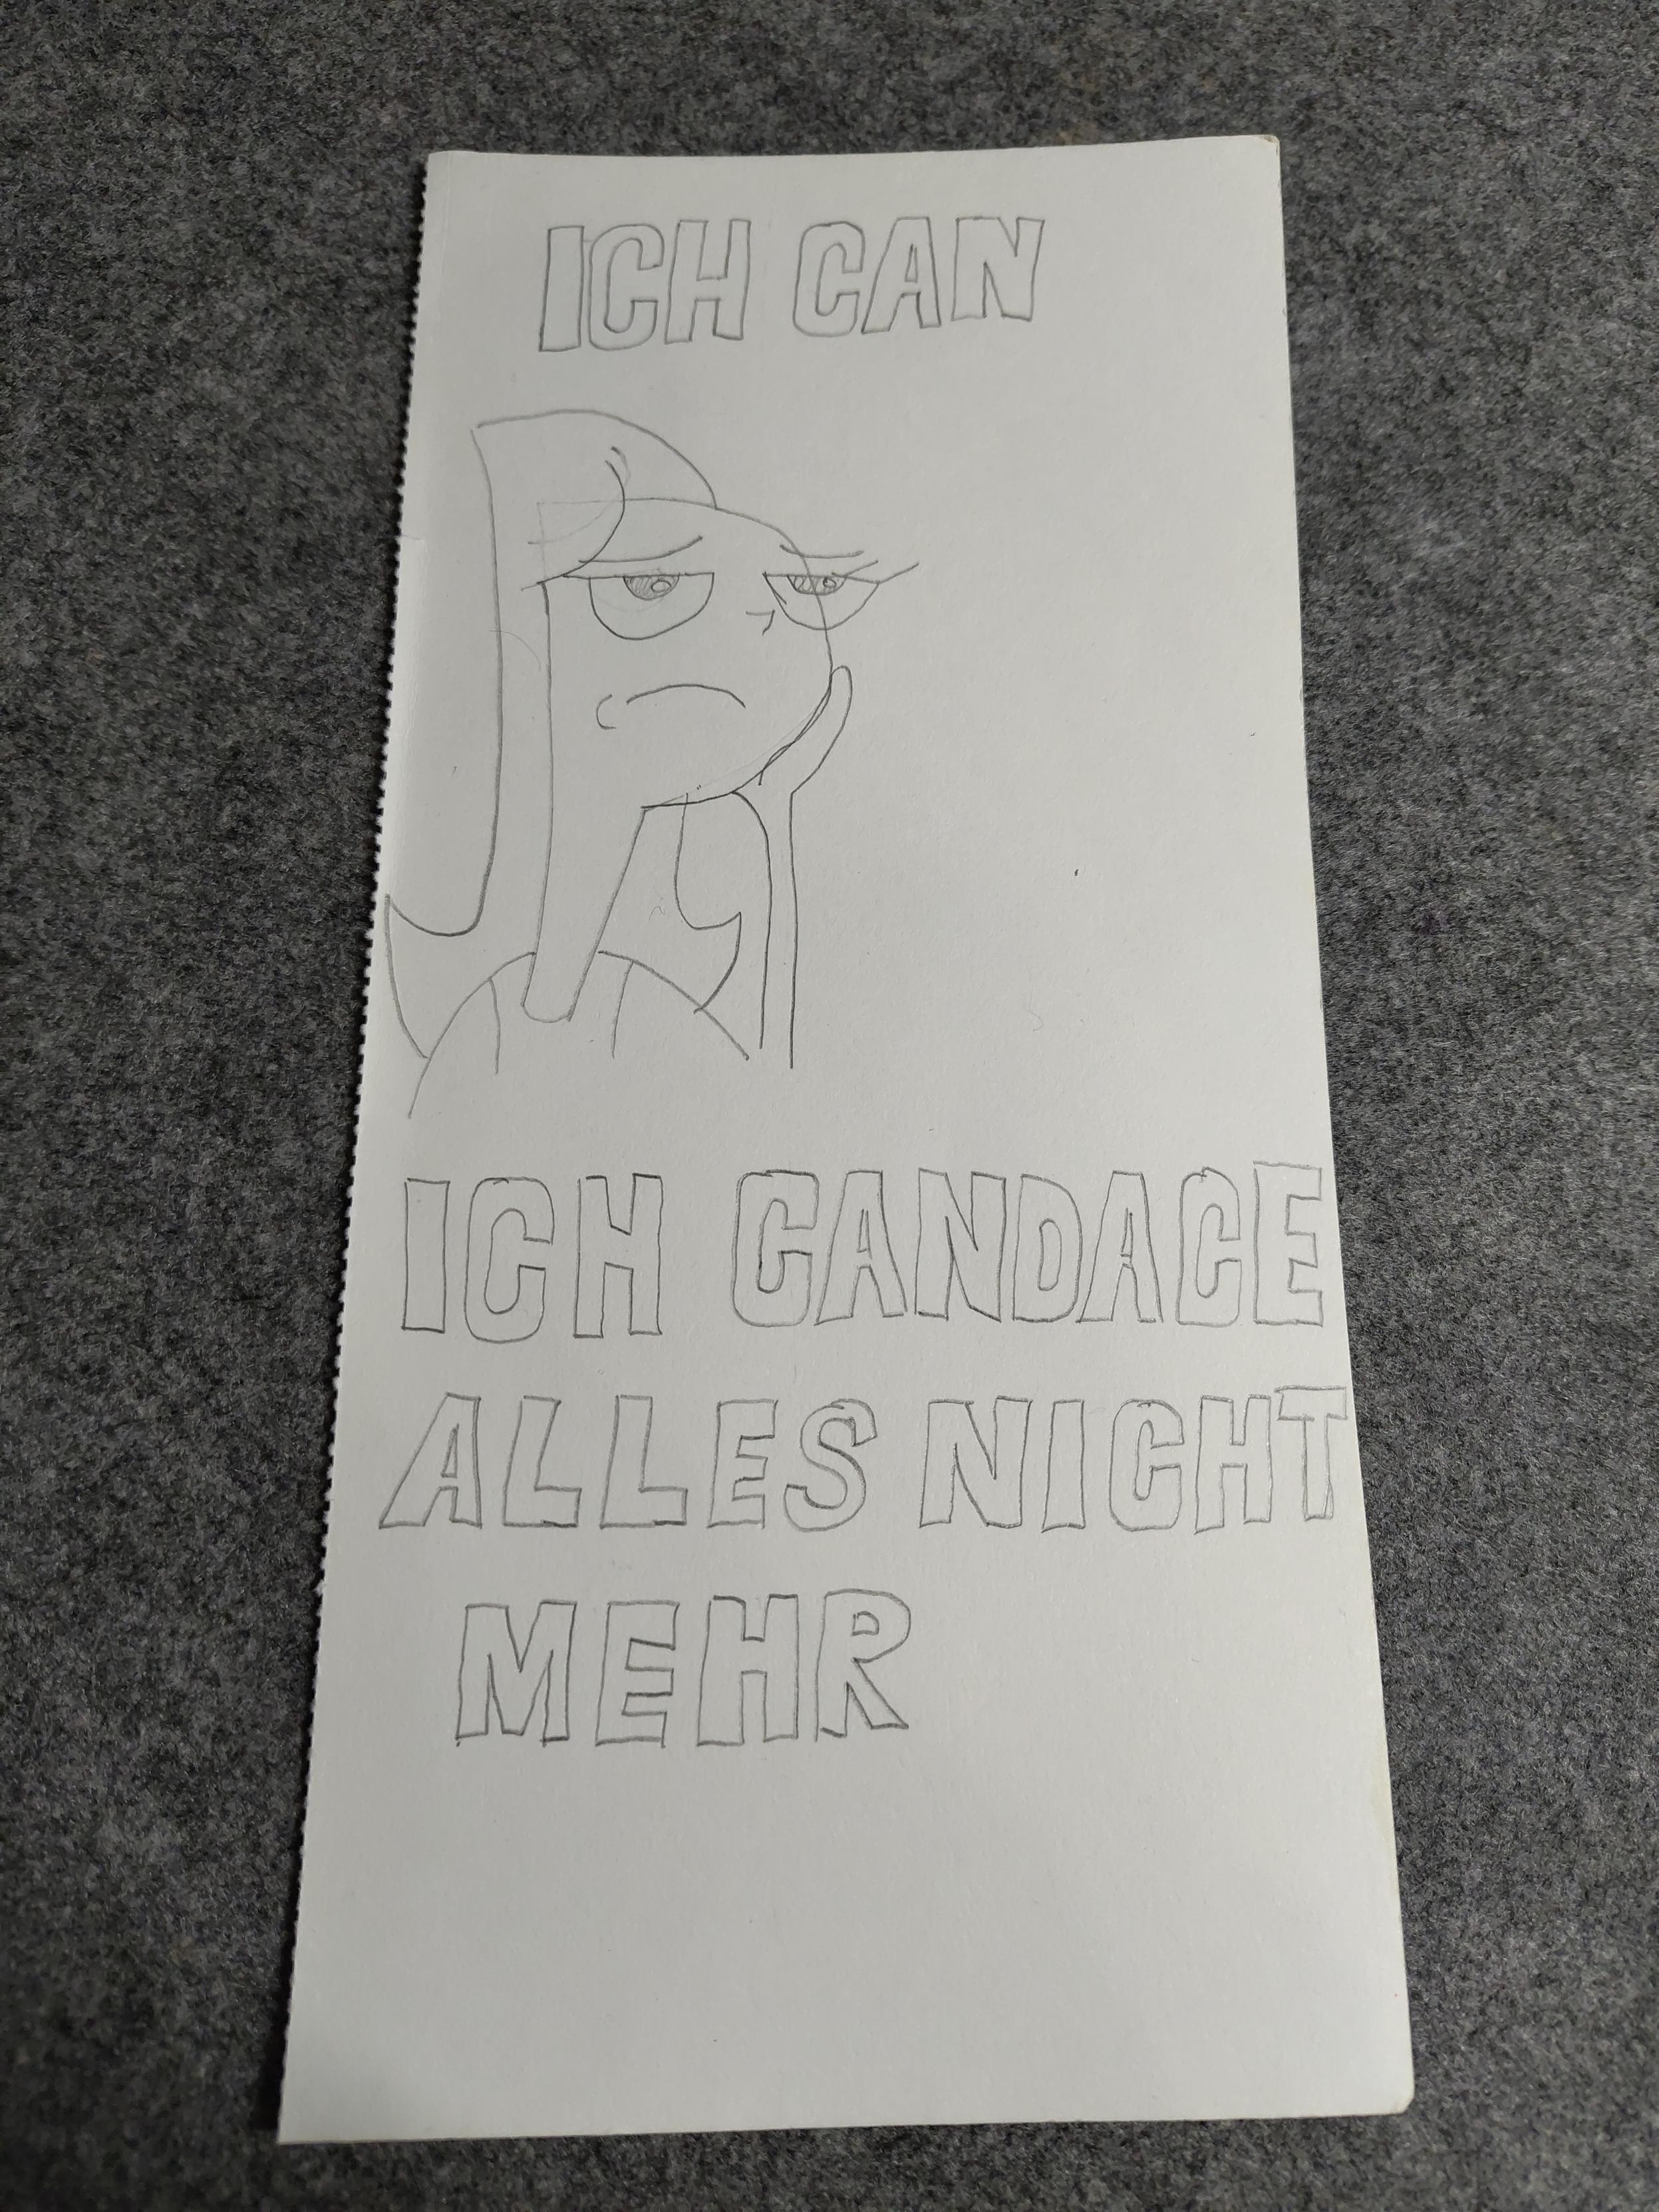 ICH CAN
ICH CANDACE
ALLES NICHT
MEHR